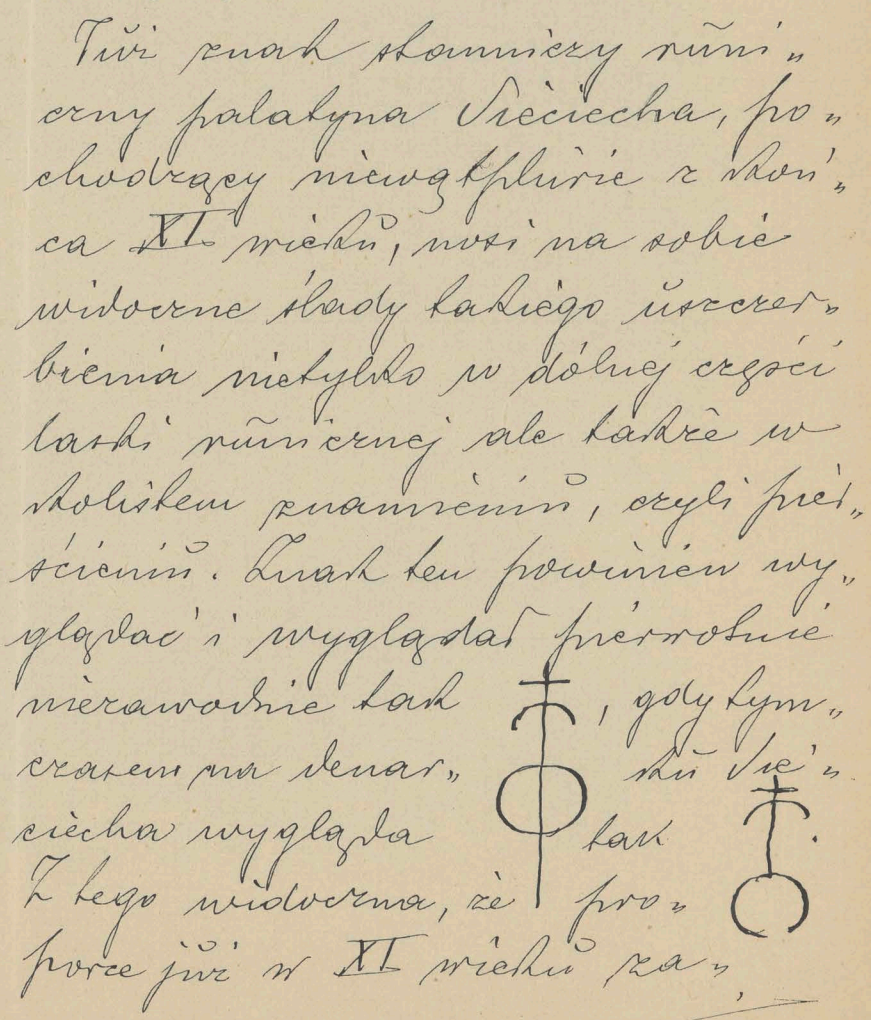 Już znak stanniczy runi„
czny palatyna Sieciecha, po„
chodzący niewątpliwie z koń„
ca XI. wieku, nosi na sobie
widoczne ślady takiego uszczer„
bienia nietylko w dólnej części
laski runicznej ale także w
kolistem znamieniu, czyli pier„
ścieniu. Znak ten powinien wy„
glądać i wyglądał pierwotnie
niezawodnie tak , gdy tym„
czasem na denar„ ku Sie„
ciecha wygląda tak .
Z tego widoczna, że pro„
porce już w XI wieku za„